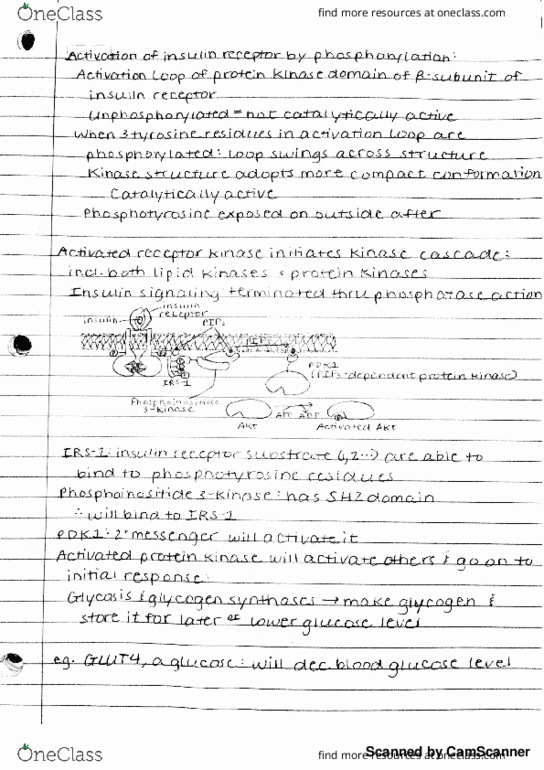 OneClass
find more resources at oneclass.com
Activation of insulin receptor by phosphorylation:
Activation loop of protein kinase domain of β-subunit of
insulin receptor
Unphosphorylated = not catalytically active
When 3 tyrosine residues in activation loop are
phosphorylated: loop swings across structure
Kinase structure adopts more compact conformation
Catalytically active
Phosphotyrosine exposed on outside after
Activated receptor kinase initiates kinase cascade:
incl. both lipid kinases & protein kinases
Insulin signaling terminated thru phosphatase action
insulin
insulin
receptor
PIP2
PIP3
IRS-1
PDK1
(PIP3-dependent protein kinase)
Phosphoinositide
3-kinase
ATP ADP
Akt
Activated Akt
IRS-1: insulin receptor substrate (1,2...) are able to
bind to phosphotyrosine residues
Phosphoinositide 3-kinase: has SH2 domain
∴ will bind to IRS-1
PDK1: 2° messenger will activate it
Activated protein kinase will activate others & go on to
initial response:
Glycosis & glycogen synthases → make glycogen &
store it for later or lower glucose level
eg. GLUT4, a glucose: will dec. blood glucose level
OneClass
find more resources at oneclass.com
Scanned by CamScanner